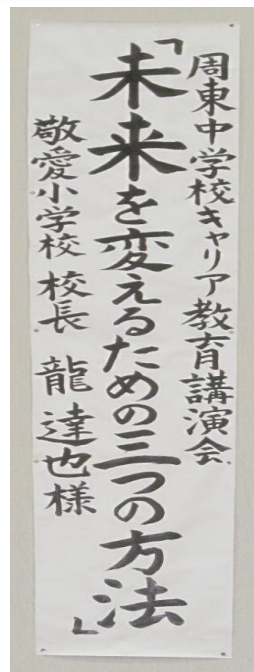 周東中学校キャリア教育講演会
「未来を変えるための三つの方法」
敬愛小学校 校長 龍 達也様